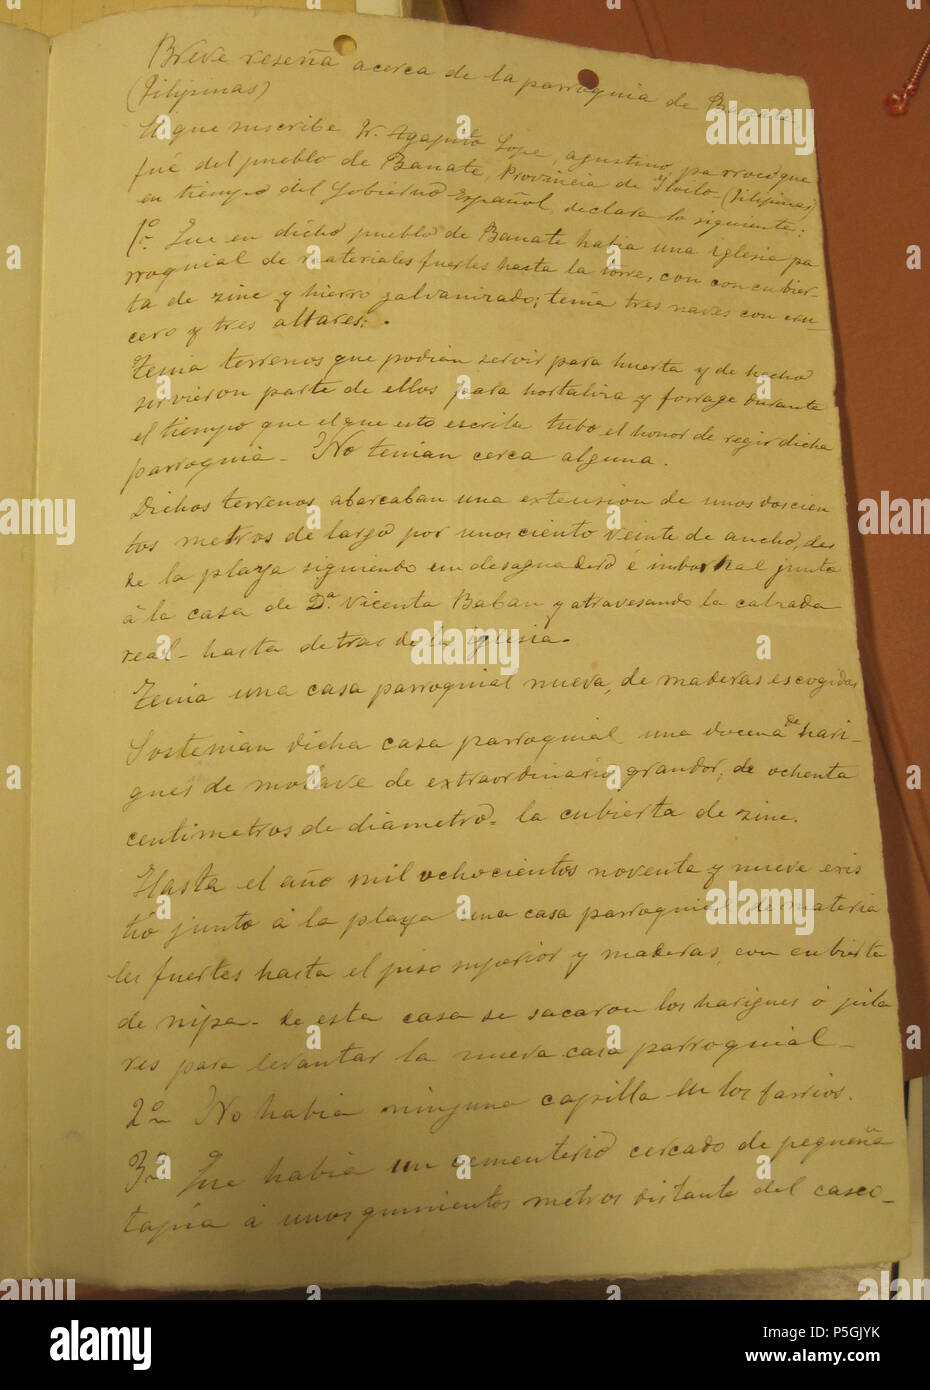 Breve reseña acerca de la parroquia de Banate
(Filipinas)
El que suscribe Fr. Agapito Lope, agustino, parroco que
fué del pueblo de Banate, Provincia de Iloilo-(Filipinas)
en tiempo del Gobierno Español, declara lo siguiente:
1º. Que en dicho pueblo de Banate habia una iglesia pa
rroquial de materiales fuertes hasta la torre, con con cubier-
ta de zinc y hierro galvanizado; tenia tres naves con cru-
cero y tres altares.
Tenia terrenos que podian servir para huerta y de hecho
sirvieron parte de ellos para hortaliza y forrage durante
el tiempo que el que esto escribe tubo el honor de regir dicha
parroquia - No tenian cerca alguna.
Dichos terrenos abarcaban una extension de unos doscien
tos metros de largo por unos ciento veinte de ancho, des
de la playa siguiendo un desaguadero é imbornal junto
á la casa de Dª. Vicenta Baban y atravesando la calzada
real - hasta detras de la iglesia.
Tenia una casa parroquial nueva, de maderas escogidas
Sostenian dicha casa parroquial una docena de hari-
gues de molave de extraordinario grandor, de ochenta
centimetros de diametro - la cubierta de zinc.
Hasta el año mil ochocientos noventa y nueve exis
tió junto á la playa una casa parroquial de materia
les fuertes hasta el piso superior y maderas, con cubierta
de nipa - de esta casa se sacaron los harigues ó pila
res para levantar la nueva casa parroquial -
2º No habia ninguna capilla en los barrios.
3º Que habia un cementerio cercado de pequeña
tapia á unos quinientos metros distante del casco-
alamy
Image ID: P5GJYK
www.alamy.com